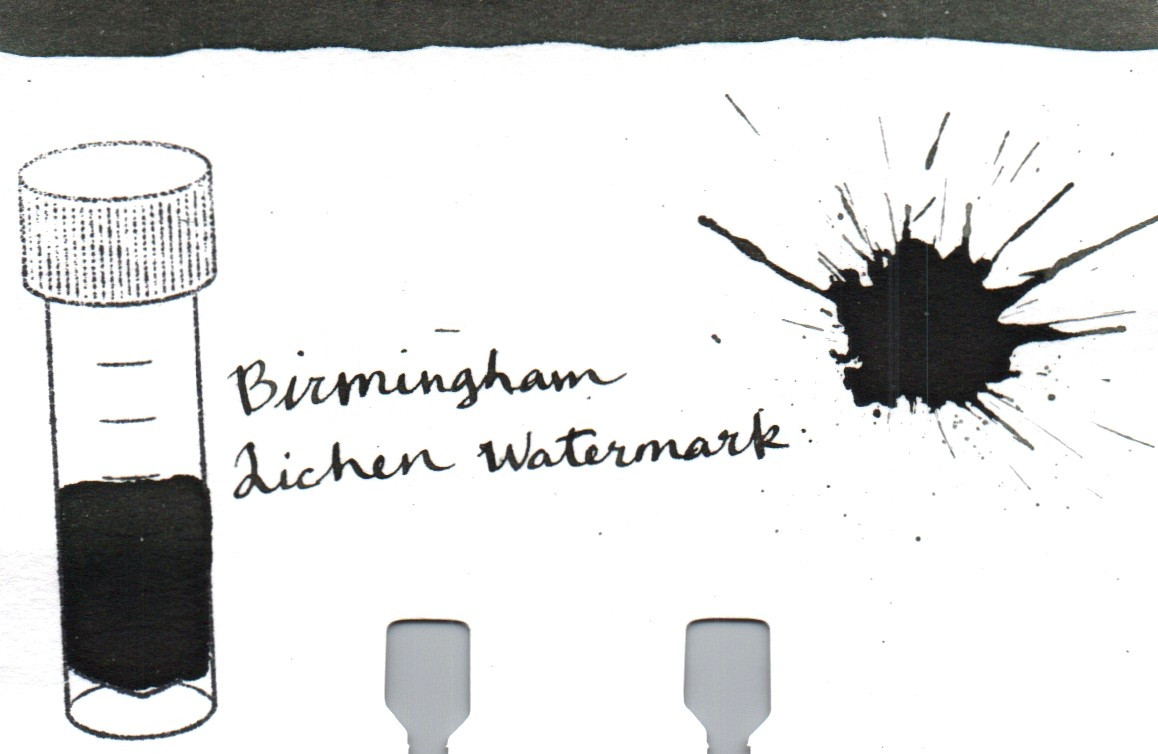 Birmingham
Lichen Watermark